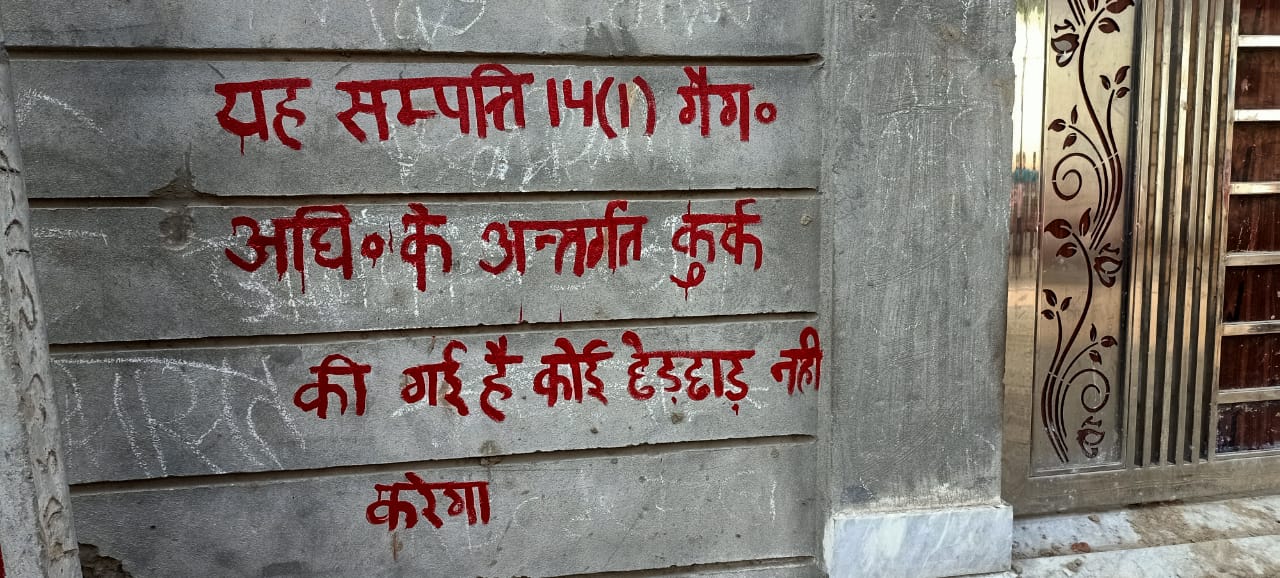 यह सम्पत्ति 14(1) गैग०
अधि० के अन्तर्गत कुर्क
की गई है कोई छेड़छाड़ नही
करेगा